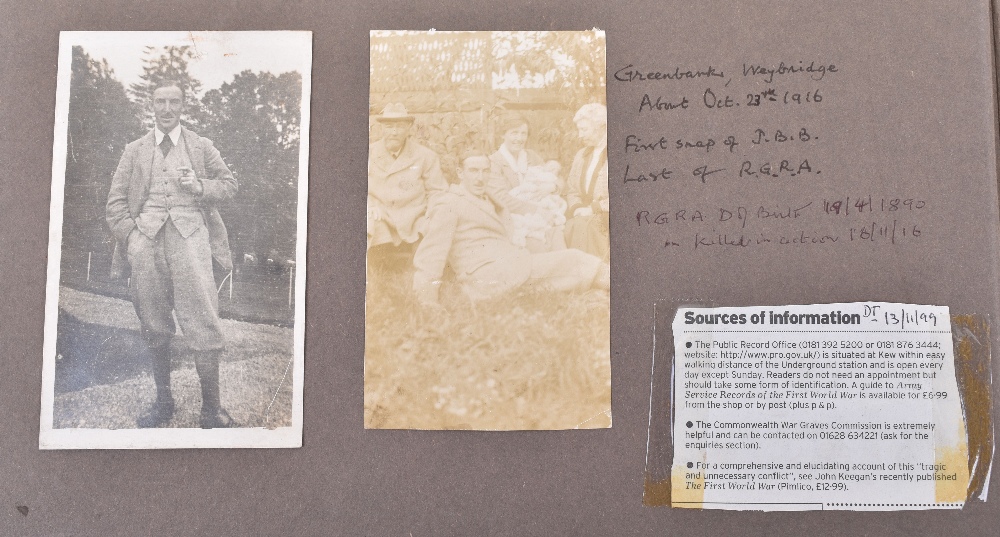 Greenbank, Weybridge
About Oct. 23rd 1916
First snap of J.B.B.
Last of R.G.R.A.
RGRA Born 19/4/1890
killed in action 18/11/16
Sources of information DT 13/11/99
● The Public Record Office (0181 392 5200 or 0181 876 3444;
website: http://www.pro.gov.uk/) is situated at Kew within easy
walking distance of the Underground station and is open every
day except Sunday. Readers do not need an appointment but
should take some form of identification. A guide to Army
Service Records of the First World War is available for £6·99
from the shop or by post (plus p & p).
● The Commonwealth War Graves Commission is extremely
helpful and can be contacted on 01628 634221 (ask for the
enquiries section).
● For a comprehensive and elucidating account of this "tragic
and unnecessary conflict", see John Keegan's recently published
The First World War (Pimlico, £12·99).